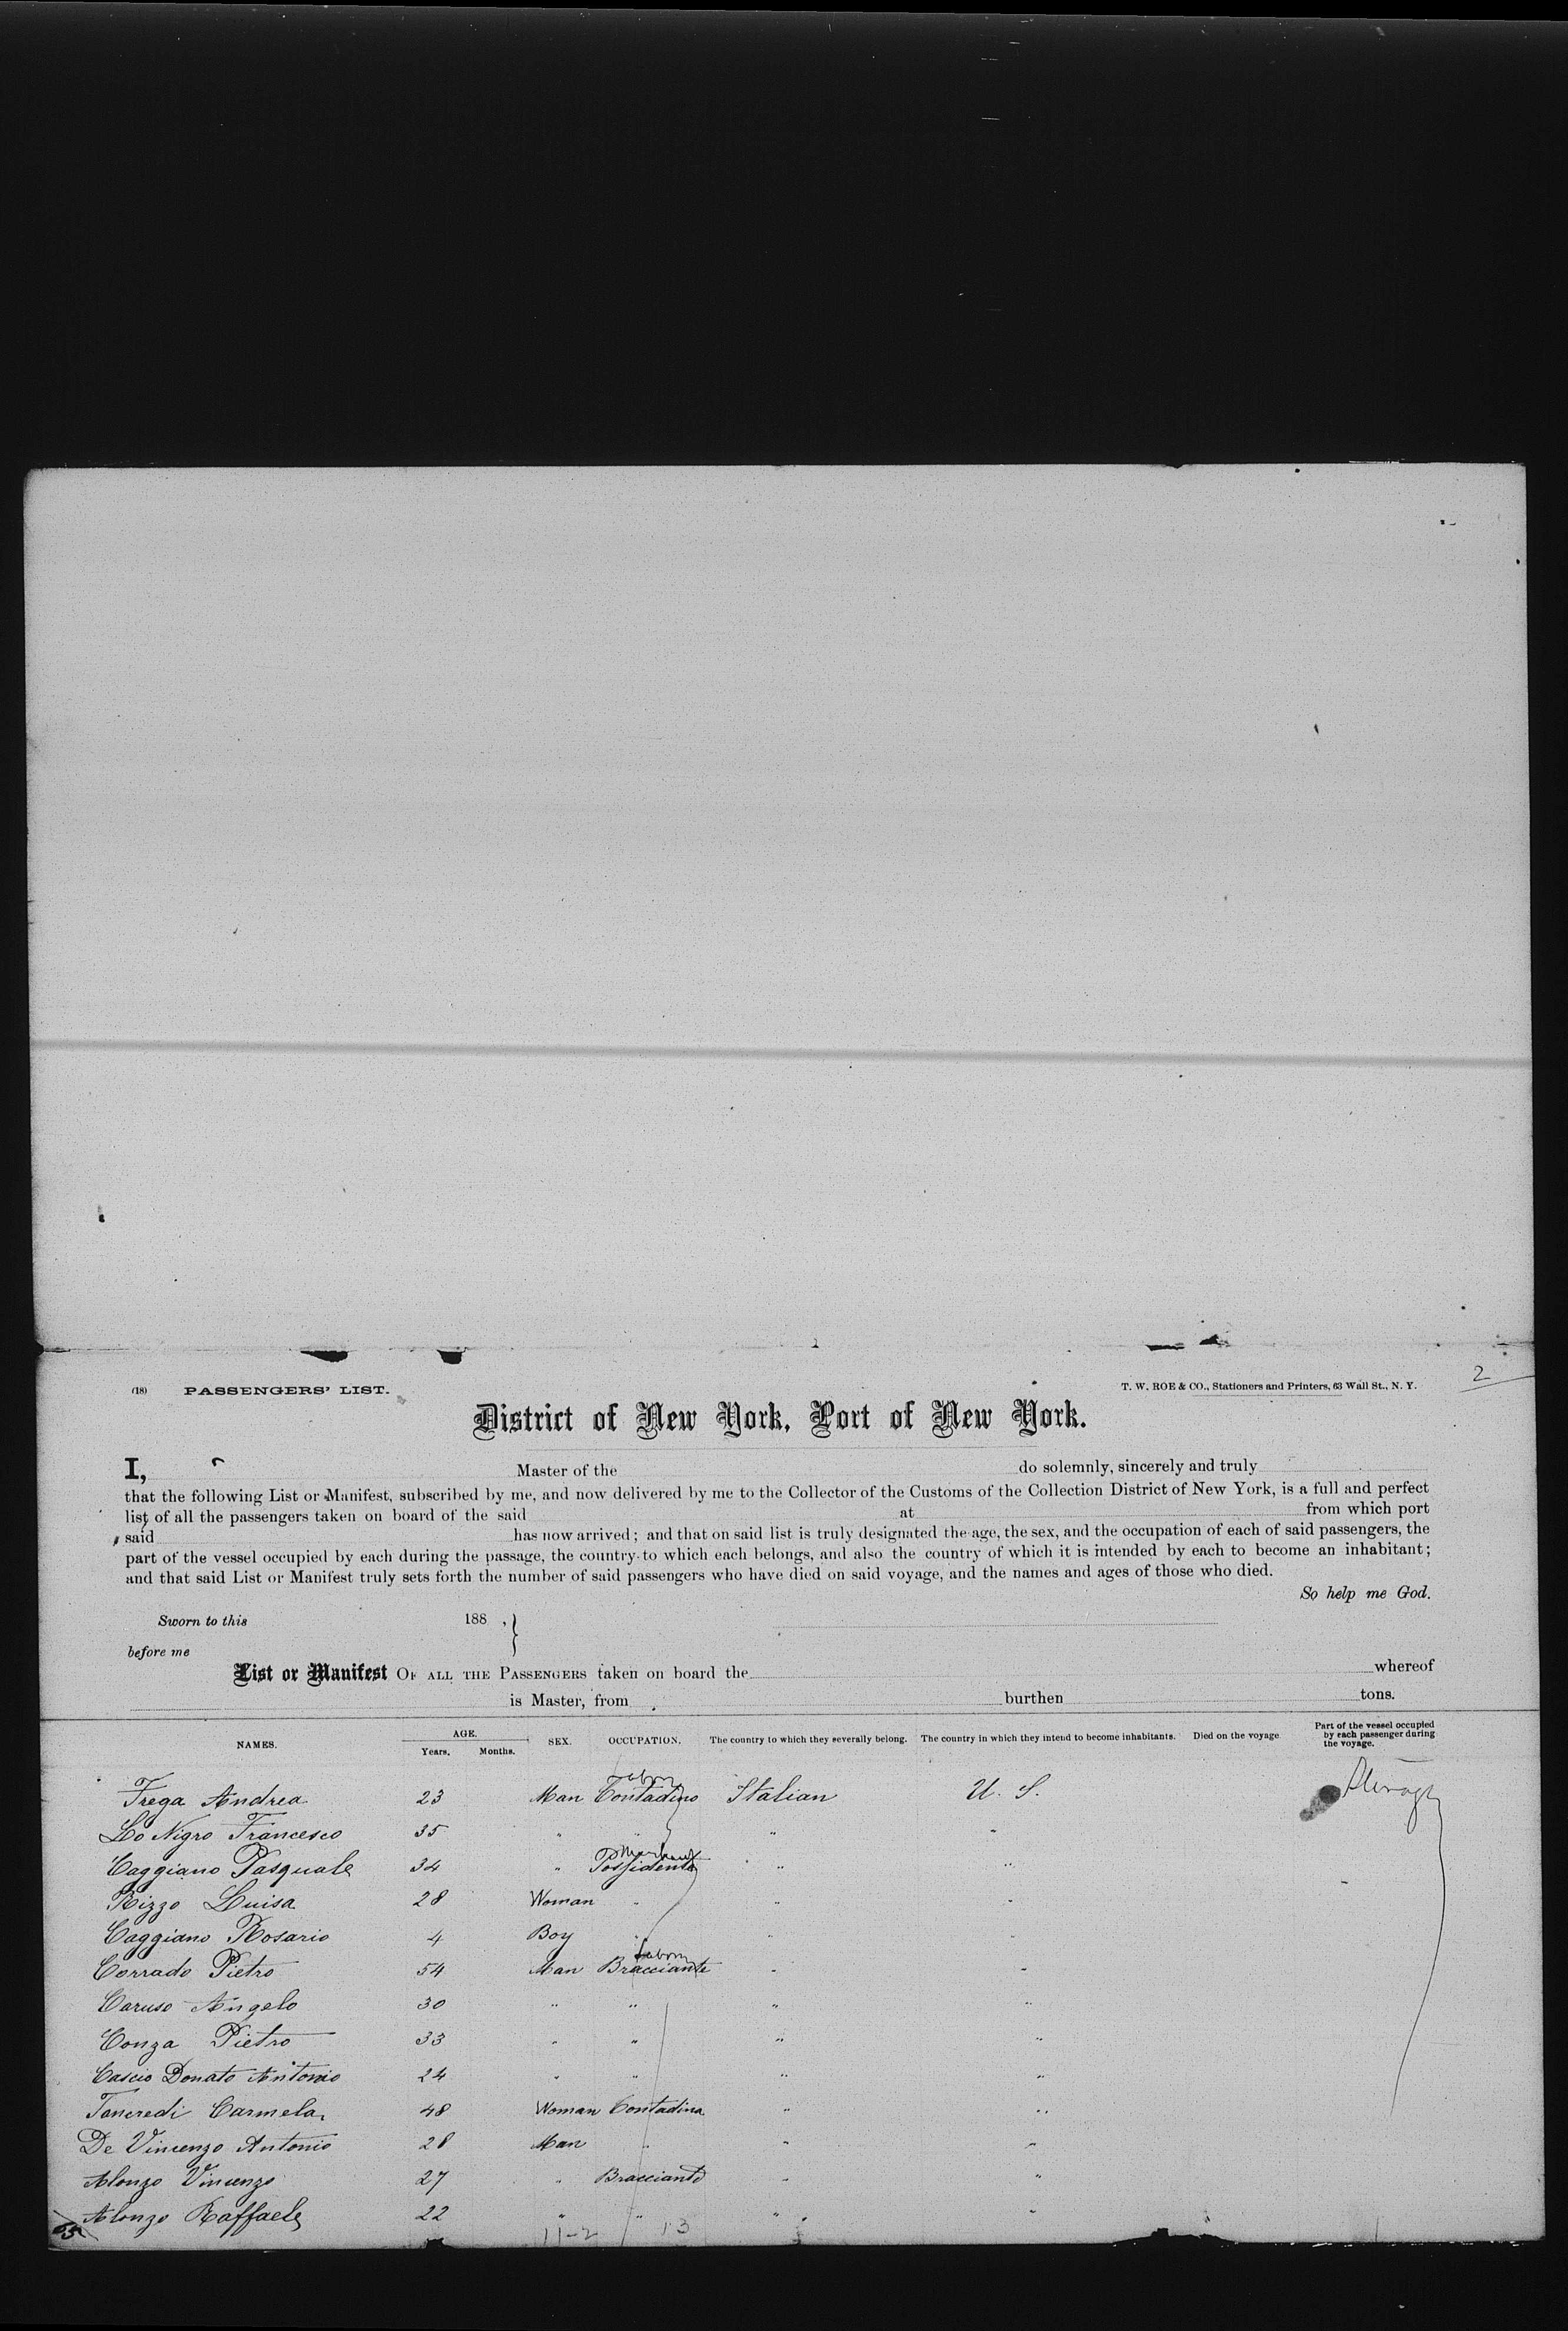 2
(18) PASSENGERS' LIST. T. W. ROE & CO., Stationers and Printers, 63 Wall St., N. Y.
District of New York, Port of New York.
I, Master of the do solemnly, sincerely and truly
that the following List or Manifest, subscribed by me, and now delivered by me to the Collector of the Customs of the Collection District of New York, is a full and perfect
list of all the passengers taken on board of the said at from which port
said has now arrived; and that on said list is truly designated the age, the sex, and the occupation of each of said passengers, the
part of the vessel occupied by each during the passage, the country to which each belongs, and also the country of which it is intended by each to become an inhabitant;
and that said List or Manifest truly sets forth the number of said passengers who have died on said voyage, and the names and ages of those who died.
So help me God.
Sworn to this 188 . }
before me
List or Manifest OF ALL THE PASSENGERS taken on board the whereof
is Master, from burthen tons.
NAMES. AGE. Years. Months. SEX. OCCUPATION. The country to which they severally belong. The country in which they intend to become inhabitants. Died on the voyage Part of the vessel occupied by each passenger during the voyage.
Labor
Frega Andrea 23 Man Contadino Italian U. S. Steerage
Lo Nigro Francesco 35 " " " "
Merchant
Caggiano Pasquale 34 " Possidente " "
Rizzo Luisa 28 Woman " " "
Caggiano Rosario 4 Boy " " "
Labor
Corrado Pietro 54 Man Bracciante " "
Caruso Angelo 30 " " " "
Conza Pietro 33 " " " "
Cascio Donato Antonio 24 " " " "
Tancredi Carmela 48 Woman Contadina " "
De Vincenzo Antonio 28 Man " " "
Alonzo Vincenzo 27 " Bracciante " "
Alonzo Raffaele 22 " " " "
11-2 13